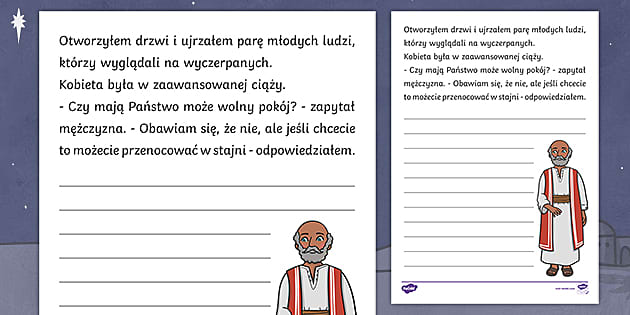 Otworzyłem drzwi i ujrzałem parę młodych ludzi,
którzy wyglądali na wyczerpanych.
Kobieta była w zaawansowanej ciąży.
- Czy mają Państwo może wolny pokój? - zapytał
mężczyzna. - Obawiam się, że nie, ale jeśli chcecie
to możecie przenocować w stajni - odpowiedziałem.
Otworzyłem drzwi i ujrzałem parę młodych ludzi,
którzy wyglądali na wyczerpanych.
Kobieta była w zaawansowanej ciąży.
- Czy mają Państwo może wolny pokój? - zapytał
mężczyzna. - Obawiam się, że nie, ale jeśli chcecie
to możecie przenocować w stajni - odpowiedziałem.